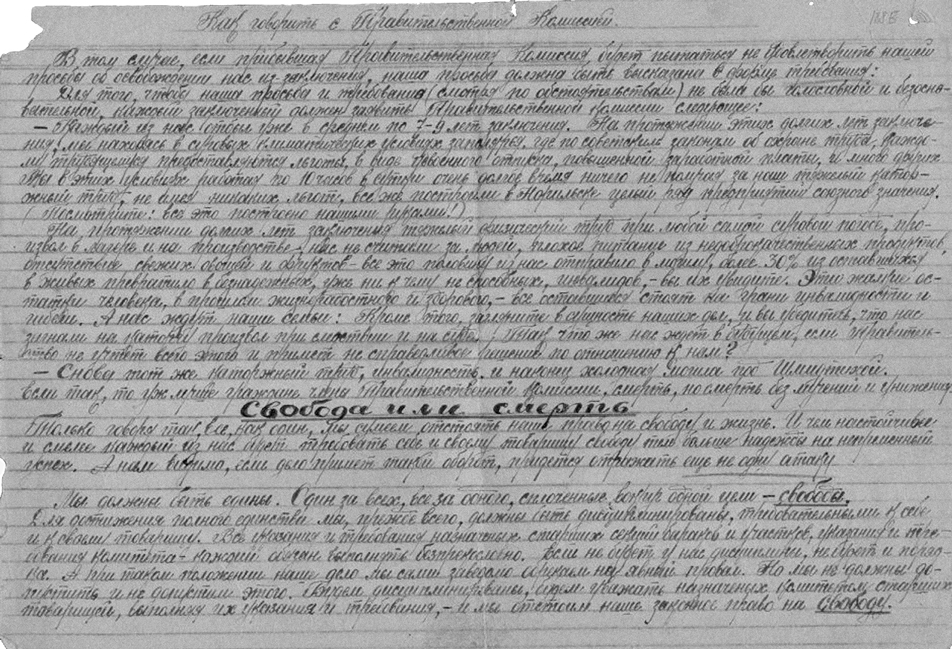 Как говорить с Правительственной Комиссией.
В том случае, если прибывшая Правительственная Комиссия будет пытаться не удовлетворить нашей
просьбы об освобождении нас из заключения, наша просьба должна быть высказана в форме требования:
Для того, чтобы наша просьба и требования (смотря по обстоятельствам) не была бы голословной и безосно-
вательной, каждый заключенный должен заявить Правительственной комиссии следующее:
— Каждый из нас отбыл уже в среднем по 7-9 лет заключения. На протяжении этих долгих лет заключе-
ния, мы находясь в суровых климатических условиях заполярья, где по советским законам об охране труда, каждо-
му трудящемуся предоставляются льготы в виде удвоенного отпуска, повышенной заработной платы, и много других
Мы в этих условиях работая по 10 часов в сутки очень долгое время ничего не получая за наш тяжелый каторж-
жный труд, не имея никаких льгот, все же построили в Норильске целый ряд предприятий союзного значения.
(Посмотрите: все это построено нашими руками!)
На протяжении долгих лет заключения тяжелый физический труд при любой самой суровой погоде, про-
извол в лагере и на производстве, нас не считали за людей, плохое питание из недоброкачественных продуктов,
отсутствие свежих овощей и фруктов — все это половину из нас отправило в могилу, более 30% из оставшихся
в живых превратило в безнадежных, уже ни к чему не способных, инвалидов, — вы их увидите. Эти жалкие ос-
татки человека, в прошлом жизнерадостного и здорового, — все оставшиеся стоят на грани инвалидности и
гибели. А нас ждут наши семьи! Кроме того, загляните в сущность наших дел, и вы убедитесь, что нас
загнали на каторгу произвол при следствии и на суде! Так что же нас ждет в будущем, если Правитель-
ство не учтет всего этого и примет не справедливое решение по отношению к нам?
— Снова тот же каторжный труд, инвалидность и наконец холодная могила под Шмидтихой.
Если так, то уж лучше граждане члены Правительственной Комиссии смерть, но смерть без мучений и унижений
Свобода или смерть
Только говоря так, все, как один, мы сумеем отстоять наши права на свободу и жизнь. И чем настойчивее
и смелее каждый из нас будет требовать себе и своему товарищу свободу тем больше надежды на непременный
успех. А нам видимо, если дело примет такой оборот, придется отражать еще не одну атаку
Мы должны быть едины. Один за всех, все за одного, сплоченные вокруг одной цели — свободы.
Для достижения полного единства мы, прежде всего, должны быть дисциплинированы, требовательными к себе
и к своему товарищу. Все указания и требования назначенных старших секций бараков и участков, указания и тре-
бования комитета — каждый обязан выполнять безпрекословно. Если не будет у нас дисциплины, не будет и поряд-
ка. А при таком положении наше дело мы сами заведомо обрекаем на явный провал. Но мы не должны до-
пустить и не допустим этого. Будем дисциплинированы, будем уважать назначеных комитетом старших
товарищей, выполняя их указания и требования, — и мы отстоим наше законное право на Свободу.